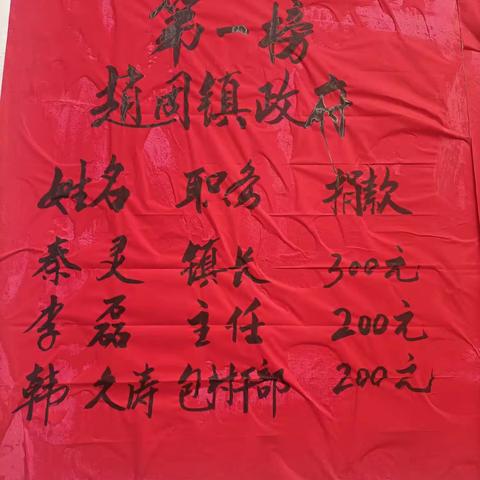 第一榜
赵固镇政府
姓名 职务 捐款
秦灵 镇长 300元
李磊 主任 200元
韩久涛 包村干部 200元